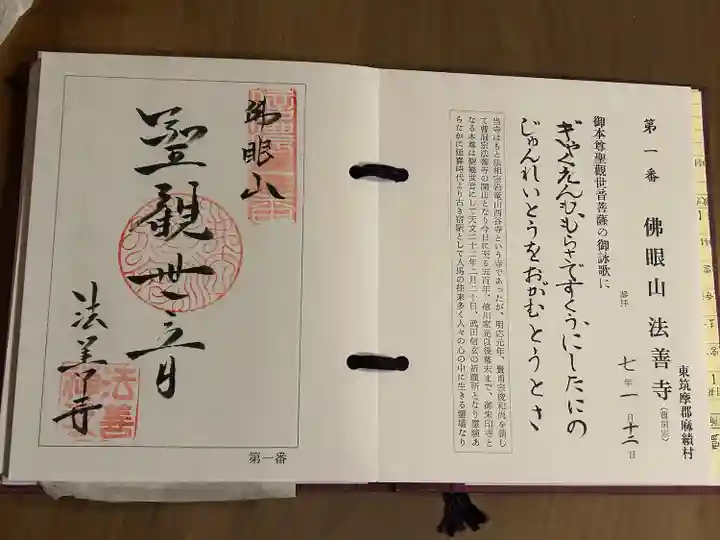 第一番
佛眼山 法善寺 (曹洞宗)
東筑摩郡麻績村
七年 一月 十二日
参拝
御本尊聖觀世音菩薩の御詠歌に
ぎゃくえんもむらさですくうにしたにの
じゅんれいとうをおがむとうとさ
当寺はもと法相宗岩竜山西谷寺という寺であったが、明応元年、賢甫宗俊和尚を請し
て曹洞宗法善寺の開山となり今日に至る五百年、徳川家光以後幕末まで、御朱印寺と
なる本尊は聖観世音にして天文二十二年二月二十日、武田信玄の祈願所となり霊験あ
らたかに延喜時代より古き宿駅として人馬の往来多く人々の心の中に生きる霊場なり
佛眼山
聖觀世音
法善寺
法善
第一番